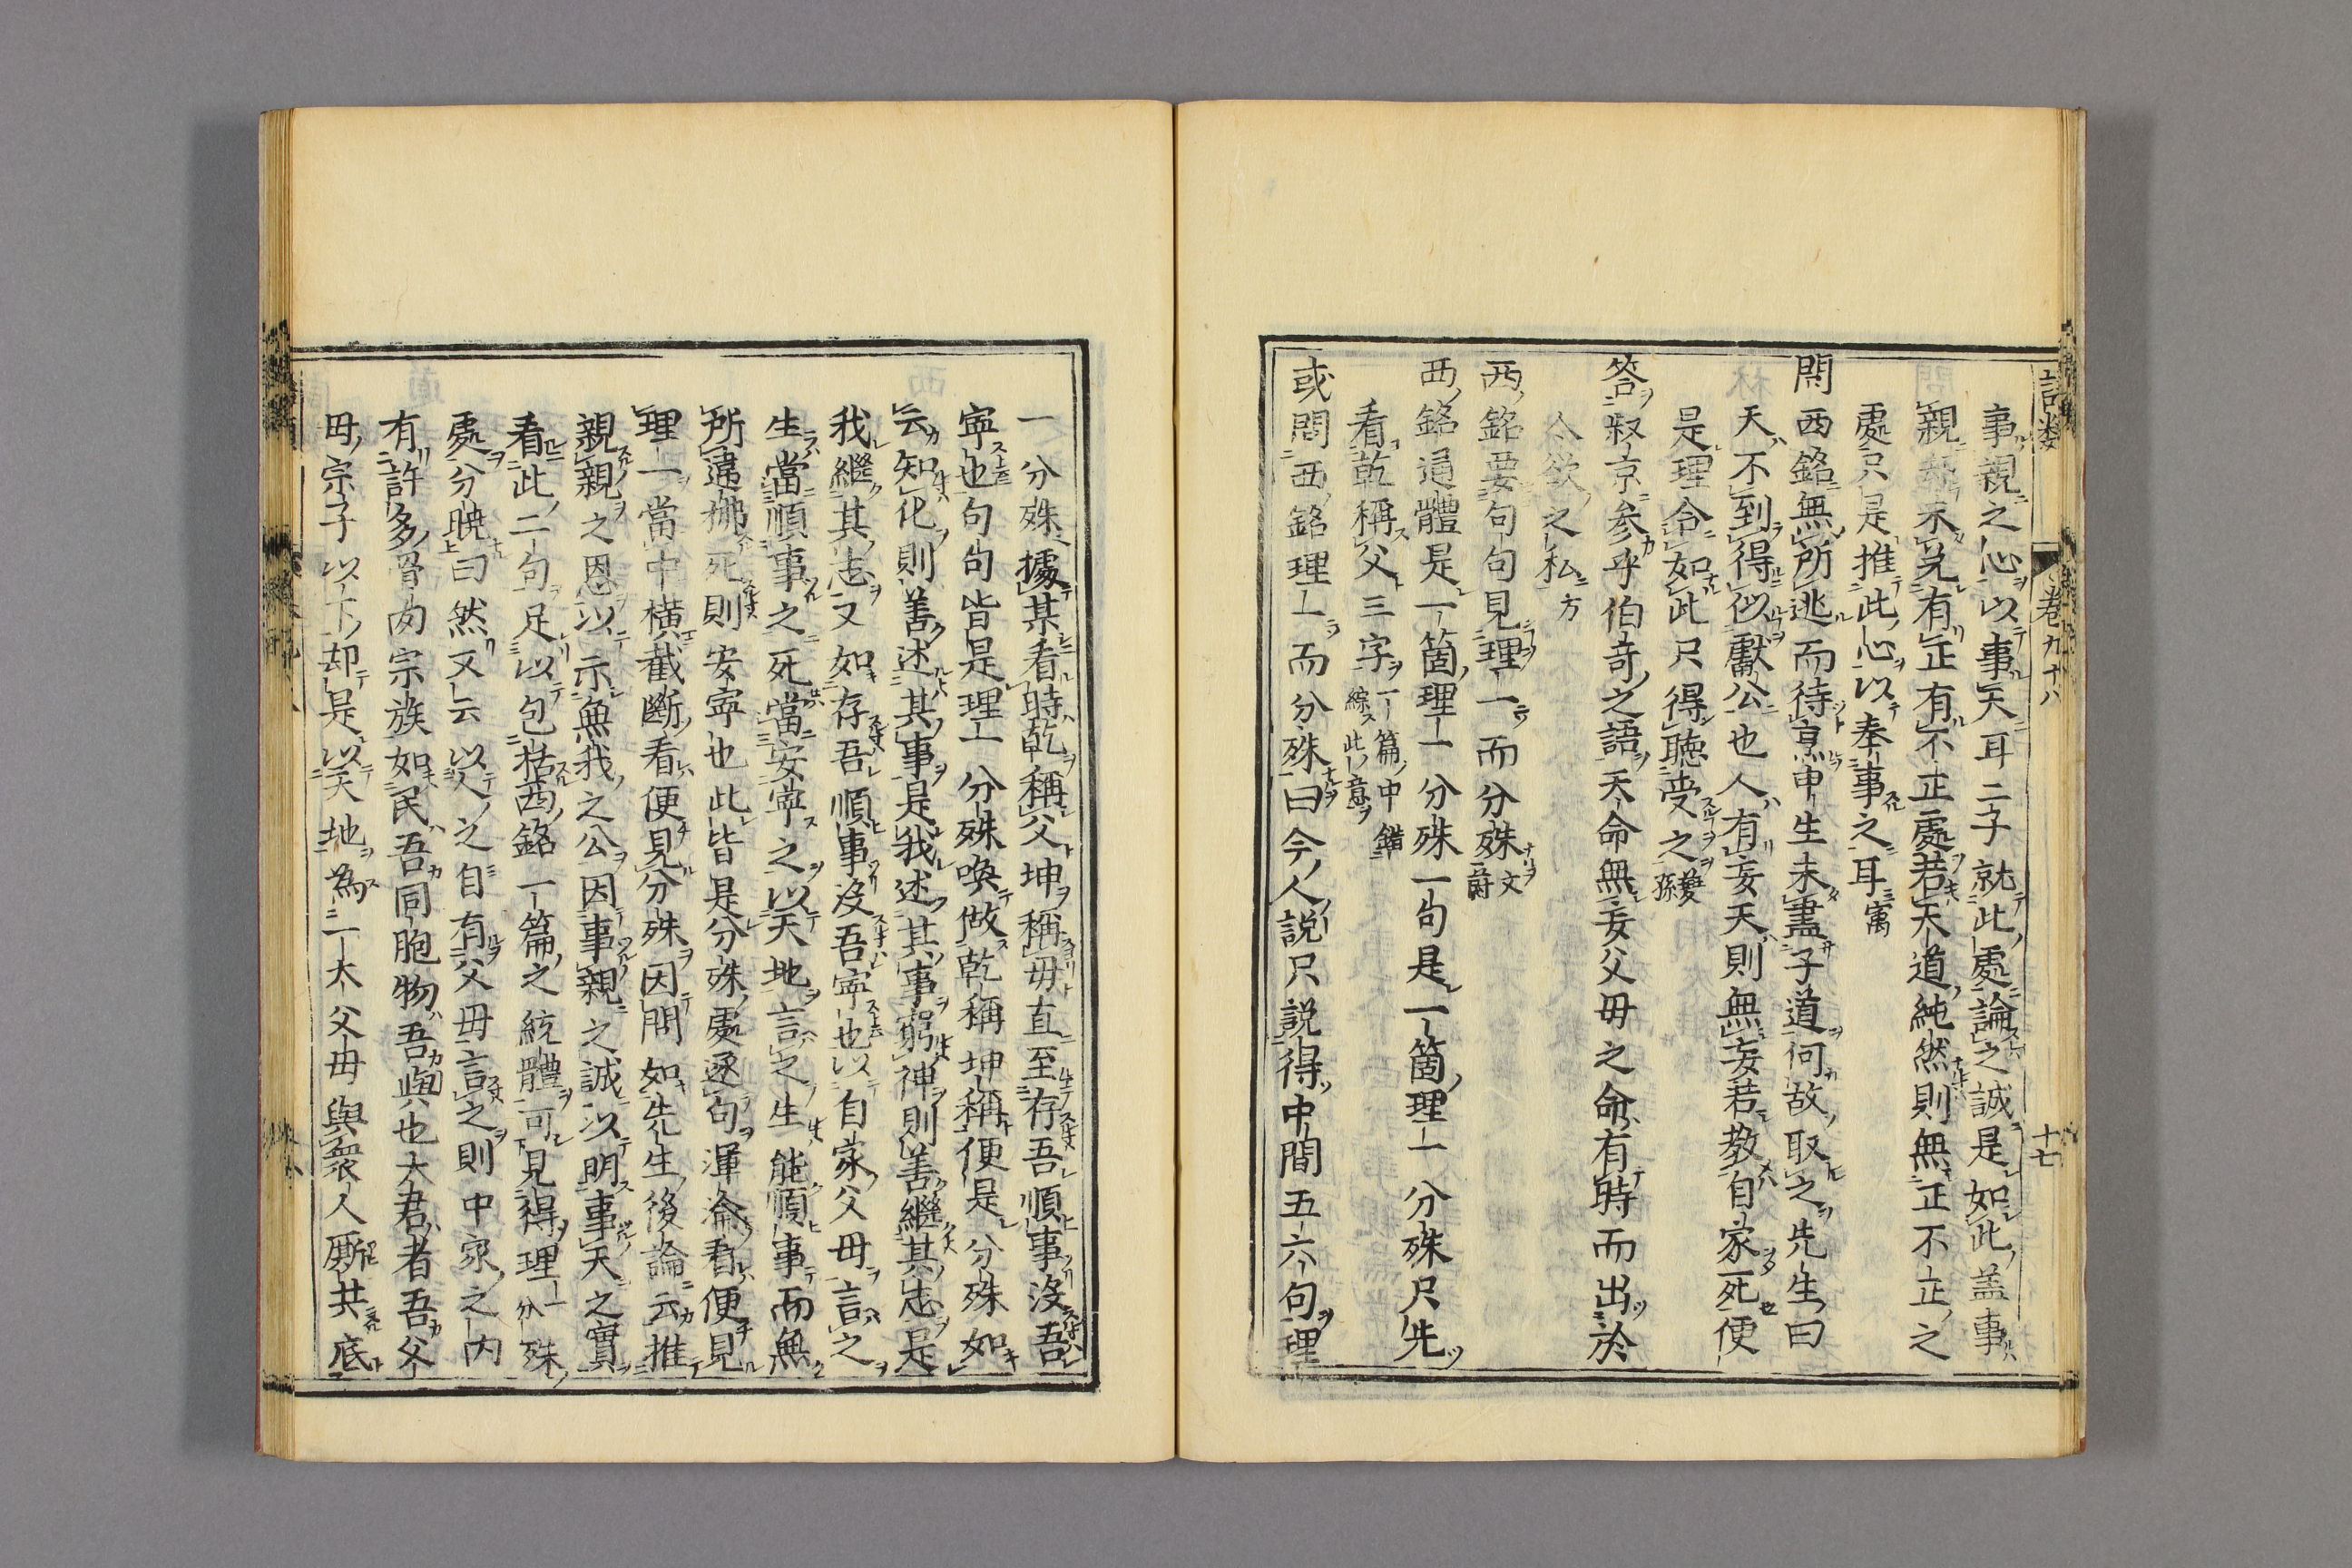 語類
卷九十八
十七
事親之心以事天耳二子就此處論之誠是如此盖事
親却不免有正有不正處若天道純然則無正不正之
處只是推此心以奉事之耳㝢
問西銘無所逃而待烹申生未盡子道何故取之先生曰
天不到得似獻公也人有妄天則無妄若教自家死便
是理合如此只得聽受之夔孫
答叔京參乎伯竒之語天命無妄父母之命有時而出於
人欲之私方
西銘要句句見理一而分殊文蔚
西銘通體是一箇理一分殊一句是一箇理一分殊只先
看乾稱父三字一篇中錯綜此意
或問西銘理一而分殊曰今人說只說得中間五六句理
一分殊據某看時乾稱父坤稱母直至存吾順事沒吾
寧也句句皆是理一分殊喚做乾稱坤稱便是分殊如
云知化則善述其事是我述其事窮神則善繼其志是
我繼其志又如存吾順事沒吾寧也以自家父母言之
生當順事之死當安寧之以天地言之生能順事而無
所違拂死則安寧也此皆是分殊處逐句渾淪看便見
理一當中橫截斷看便見分殊因問如先生後論云推
親親之恩以示無我之公因事親之誠以明事天之實
看此二句足以包括西銘一篇之統體可見得理一分殊
處分曉曰然又云以人之自有父母言之則中家之內
有許多骨肉宗族如民吾同胞物吾與也大君者吾父
母宗子以下却是以天地為一大父母與衆人厮共底